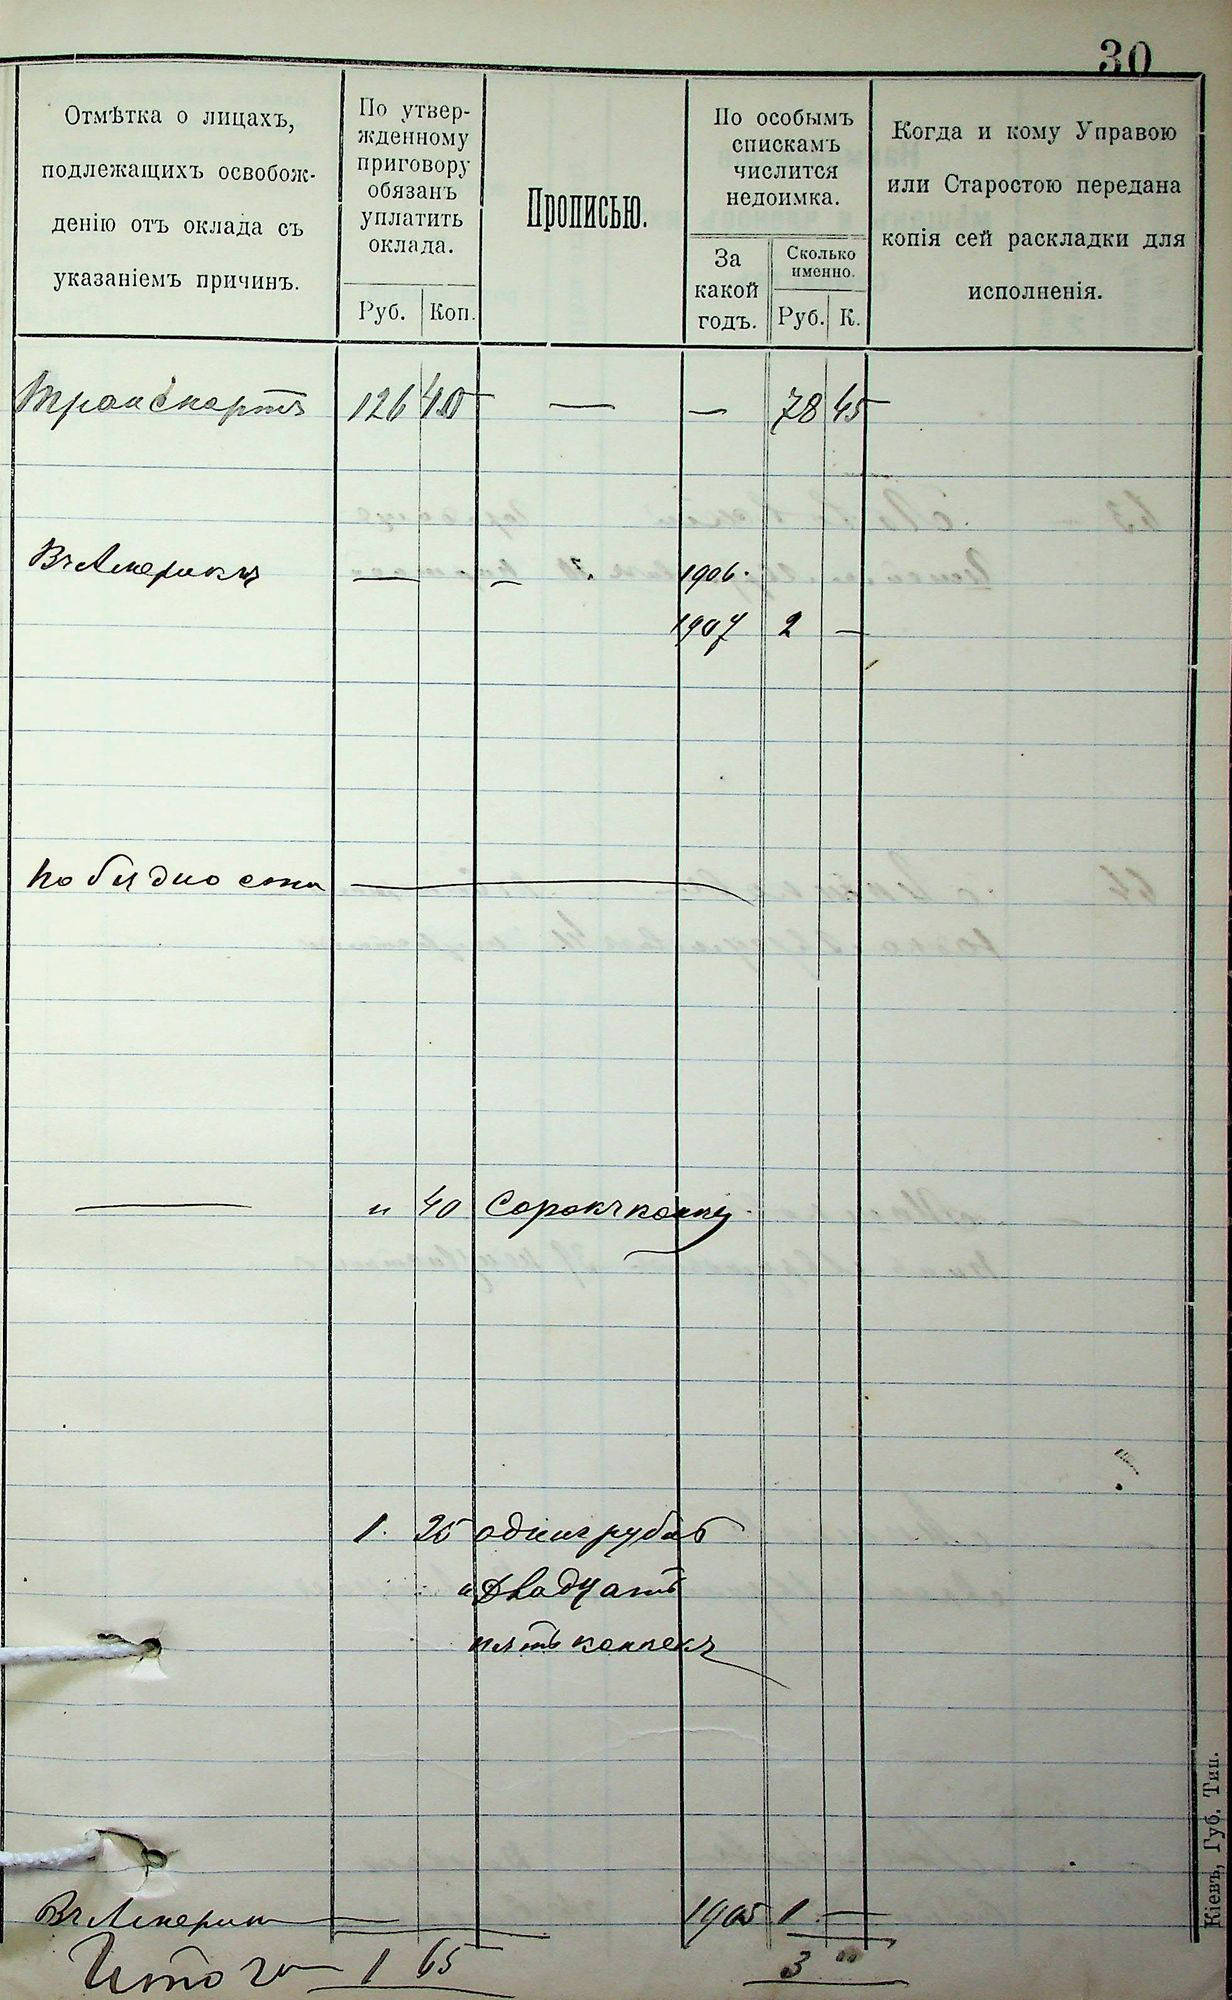 30
Отмѣтка о лицахъ,
подлежащихъ освобож-
денію отъ оклада съ
указаніемъ причинъ.
По утвер-
жденному
приговору
обязанъ
уплатить
оклада.
Руб. Коп.
Прописью.
По особымъ
спискамъ
числится
недоимка.
За
какой
годъ.
Сколько
именно.
Руб. К.
Когда и кому Управою
или Старостою передана
копія сей раскладки для
исполненія.
Транспортъ 126 40 — — 78 45
Въ Америкѣ — — 1906.
1907 2 —
По бѣдности —
— " 40 Сорокъ копѣ
1. 25 одинъ рубль
и двадцать
пять копѣекъ
Въ Америкѣ — 1905 1 —
Итого 1 65 3 "
Кіевъ, Губ. Тип.